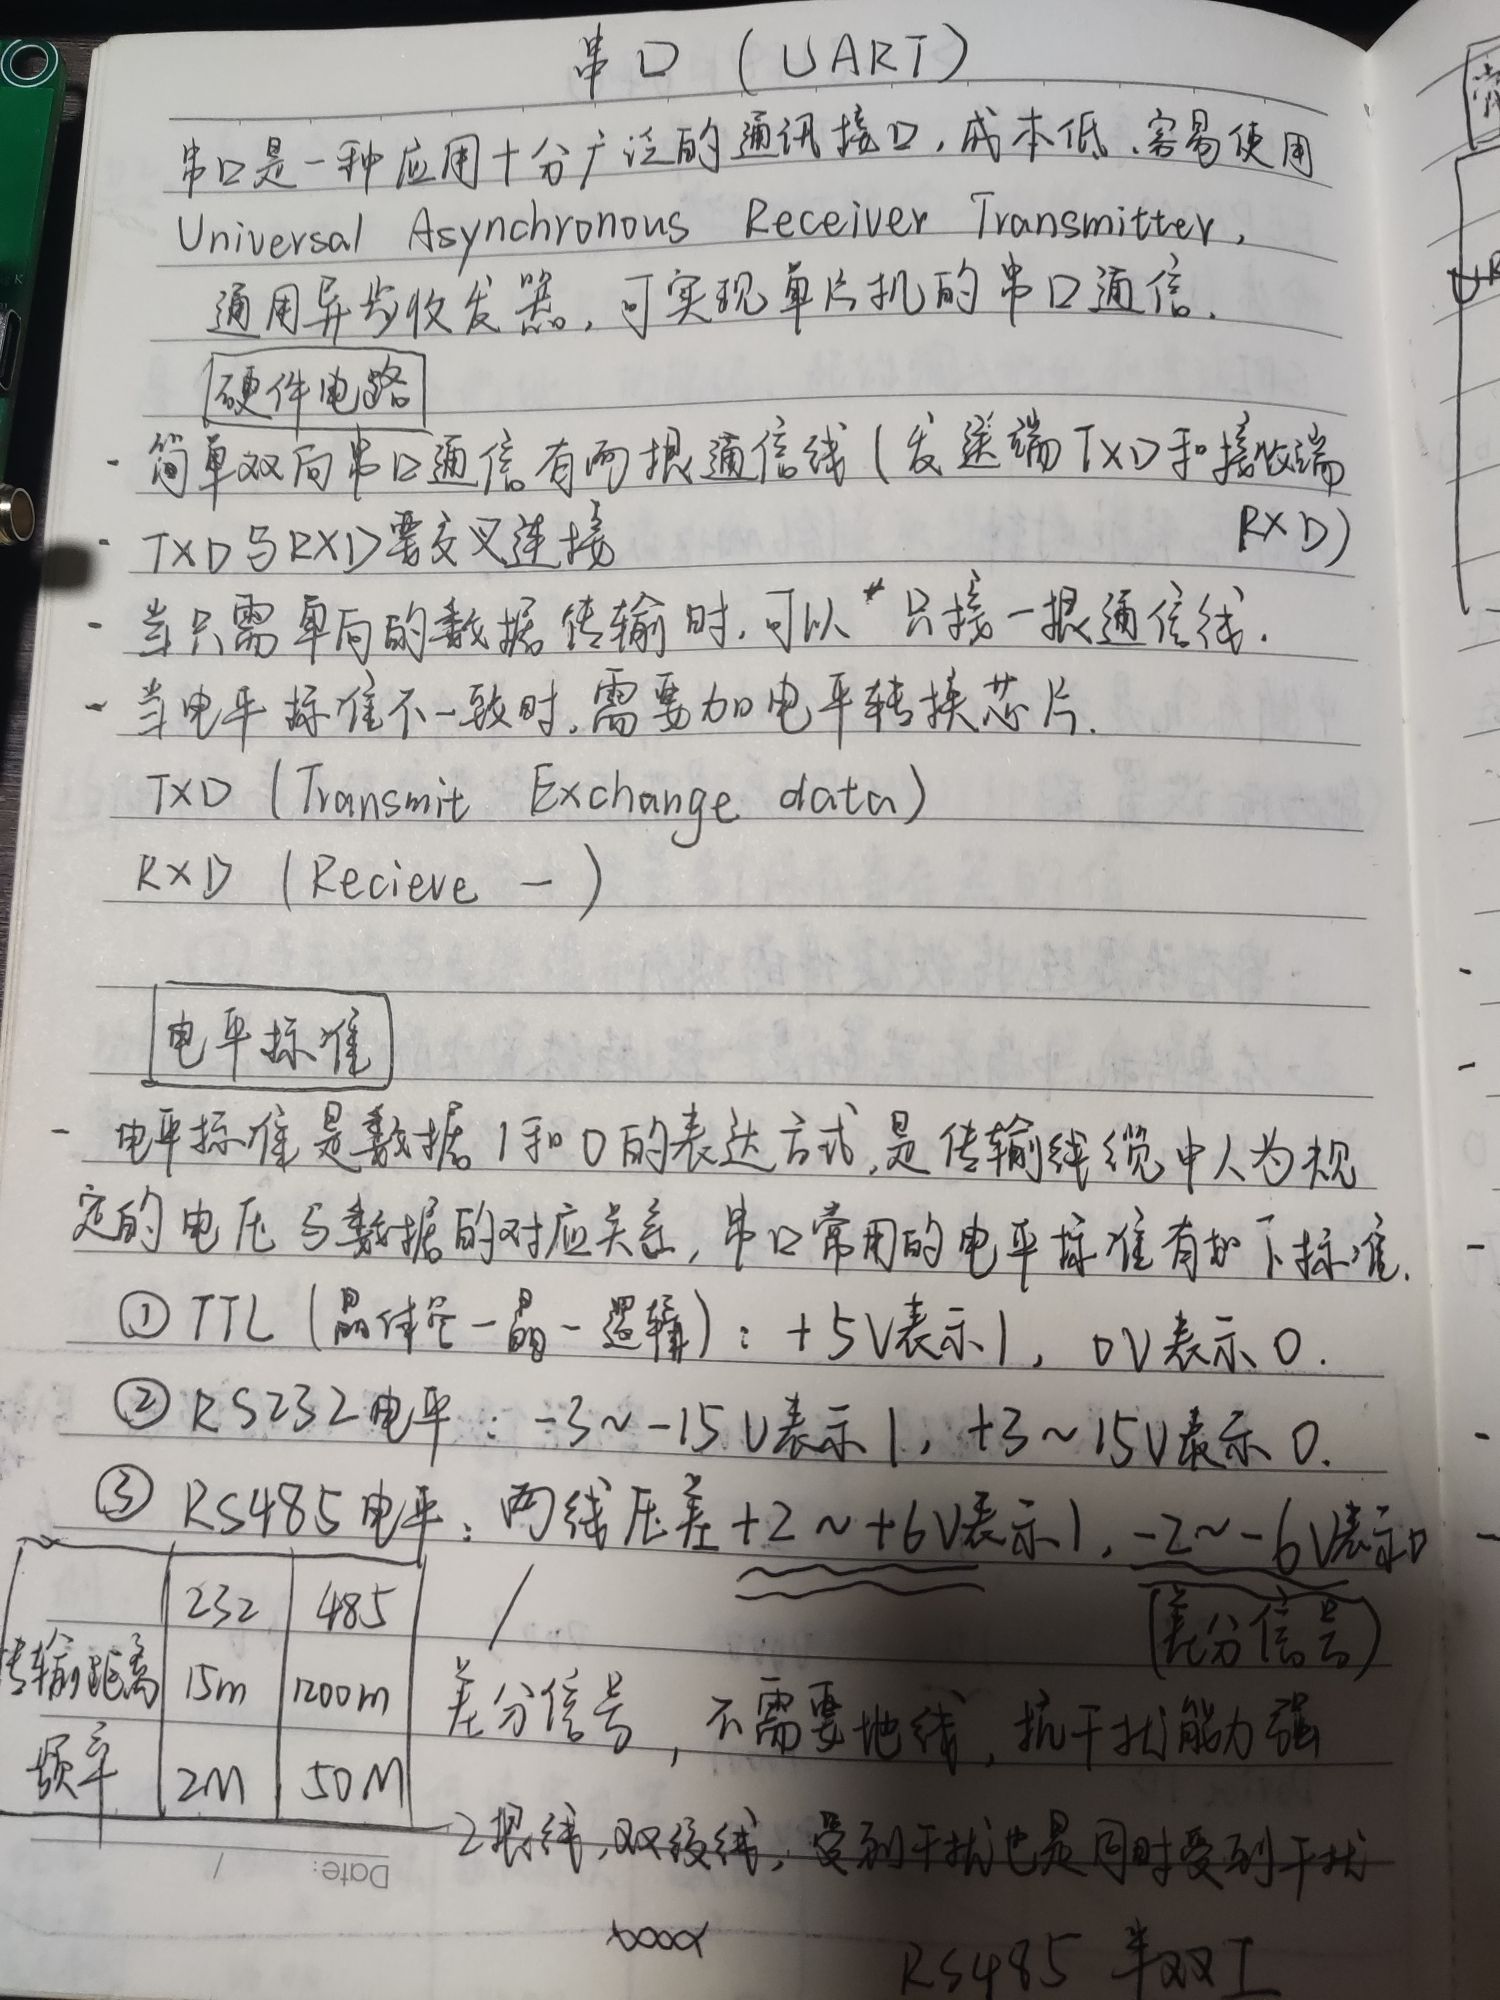 串口 (UART)
串口是一种应用十分广泛的通讯接口,成本低、容易使用
Universal Asynchronous Receiver Transmitter,
通用异步收发器,可实现单片机的串口通信.
硬件电路
- 简单双向串口通信有两根通信线(发送端TXD和接收端
RXD)
- TXD与RXD要交叉连接
- 当只需单向的数据传输时,可以只接一根通信线.
- 当电平标准不一致时,需要加电平转换芯片.
TXD (Transmit Exchange data)
RXD (Recieve — )
电平标准
- 电平标准是数据1和0的表达方式,是传输线缆中人为规
定的电压与数据的对应关系,串口常用的电平标准有如下标准.
① TTL (晶体管-晶-逻辑): +5V表示1, 0V表示0.
② RS232电平: -3~-15V表示1, +3~15V表示0.
③ RS485电平: 两线压差+2~+6V表示1, -2~-6V表示0
(差分信号)
232 485
传输距离 15m 1200m
频率 2M 50M
差分信号,不需要地线,抗干扰能力强
2根线,双绞线,受到干扰也是同时受到干扰
Date: /
RS485 半双工